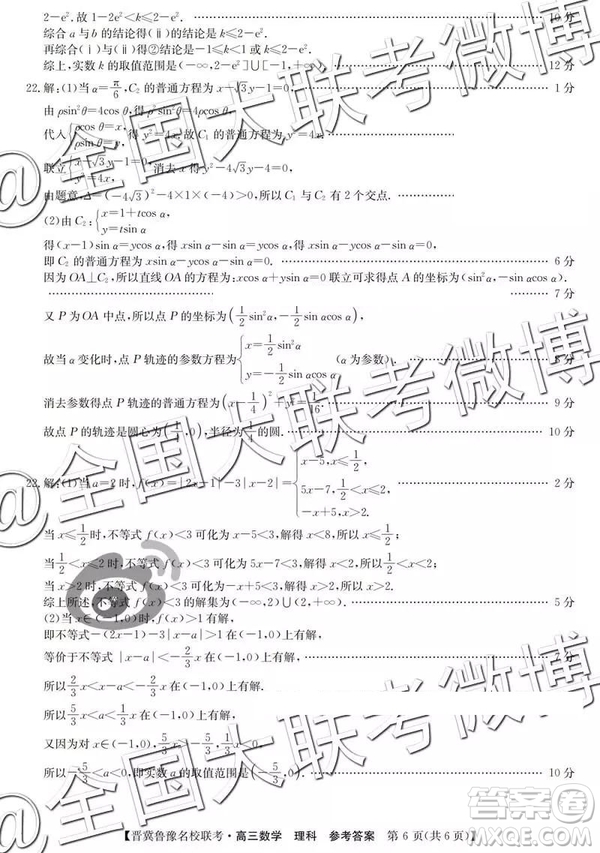 2-e². 故 1-2e²<k≤2-e². 10分
综合a与b的结论得(ⅱ)的结论是-1<k≤2-e².
再综合(ⅰ)与(ⅱ)得②结论是-1≤k≤1或k≤2-e².
综上,实数k的取值范围是(-∞,2-e²]∪[-1,1]. 12分
22.解:(1)当α=π/6, C₂的普通方程为x-√3y-1=0. 1分
由ρsin²θ=4cosθ,得ρ²sin²θ=4ρcosθ,
代入{ρcosθ=x, 得y²=4x.故C₁的普通方程为y²=4x.
联立 消去x得
由题意, (-4√3)²-4×1×(-4)>0,所以C₁与C₂有2个交点.
(2)由C₂:{x=1+tcosα, y=tsinα
得(x-1)sinα=ycosα,得xsinα-sinα=ycosα,得xsinα-ycosα
即C₂的普通方程为xsinα-ycosα-sinα=0. 6分
因为OA⊥C₂,所以直线OA的方程为:xcosα+ysinα=0联立可求得点A的坐标为(sin²α,-sin
7分
又P为OA中点,所以点P的坐标为(1/2sin²α,-1/2sinα
故当α变化时,点P轨迹的参数方程为{x=1/2sin²α (α为参数).
消去参数得点P轨迹的普通方程为(x-1/4)²+y²=1/16. 9分
故点P的轨迹是圆心为(1/4,0),半径为1/4的圆. 10分
23.解:(1)当a=2时,f(x)=|2x-1|-3|x-2|={x-5,x≤1/2, 5x-7,1/2<x≤2, -x+5,x>2. 2分
当x≤1/2时,不等式f(x)<3可化为x-5<3,解得x<8,所以x≤1/2.
当1/2<x≤2时,不等式f(x)<3可化为5x-7<3,解得x<2,所以1/2<x<2.
当x>2时,不等式f(x)<3可化为-x+5<3,解得x>2,所以x>2.
综上所述,不等式f(x)<3的解集为(-∞,2)∪(2,+∞). 5分
(2)当 时,f(x)>1有解,
即不等式-(2x-1)-3|x-a|>1在(-1,0)上有解,
等价于不等式|x-a|<-2/3x在(-1,0)上有解, 7分
所以2/3x<x-a<-2/3x在(-1,0)上有解,
所以1/3x<a<5/3x在(-1,0)上有解,
又因为对x∈(-1,0),
所以-5/3<a<0,即实数a的取值范围是(-5/3,0). 10分
【晋冀鲁豫名校联考·高三数学 理科 参考答案 第6页(共6页)】
@全国大联考微博
@全国大联考微博
@全国大联考微博